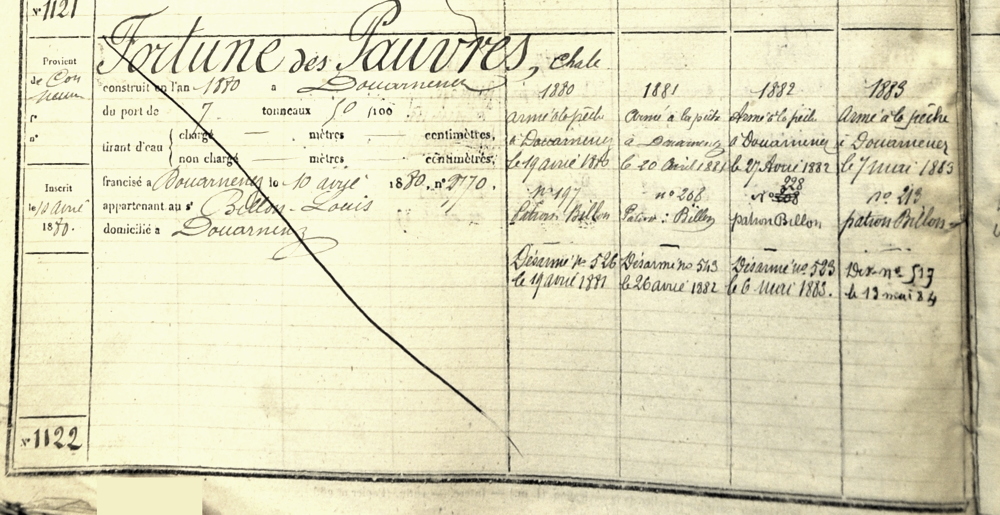 N° 1121
Fortune des Pauvres, Chale
Provient
de Con
f°
n°
Inscrit
le 10 avril
1880.
N° 1122
construit en l'an 1880 a Douarnenez
du port de 7 tonneaux 50/100
tirant d'eau { chargé — mètres — centimètres,
non chargé — mètres — centimètres,
francisé a Douarnenez le 10 avril 1880, n° 2770.
appartenant au sr Billon Louis
domicilié a Douarnenez
1880
armé à la pêche
à Douarnenez
le 19 avril 1880
n° 197
Patron Billon
Désarmé n° 526
le 19 avril 1881
1881
Armé à la pêche
à Douarnenez
le 20 Avril 1881
n° 208
Patron: Billon
Désarmé n° 543
le 26 avril 1882
1882
Armé à la pêche
à Douarnenez
le 27 Avril 1882
228
n° 208
patron Billon
Désarmé n° 523
le 6 mai 1883.
1883
Armé à la pêche
à Douarnenez
le 7 mai 1883
n° 213
patron Billon
Des. n° 517
le 13 mai 84